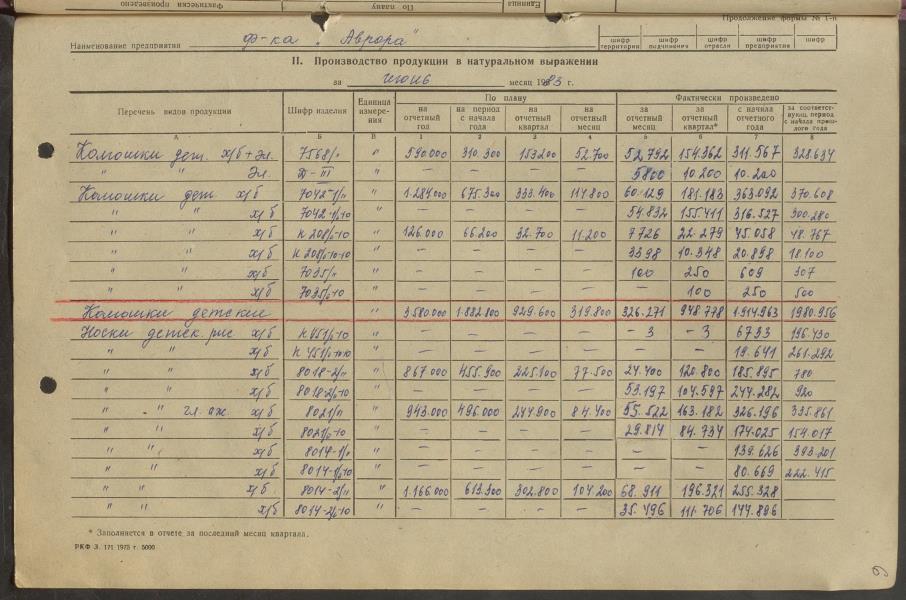 Фактически произведено
По плану
Единица
Продолжение формы № 1-п
Наименование предприятия ф-ка „Аврора"
шифр территории шифр подчинения шифр отрасли шифр предприятия шифр
II. Производство продукции в натуральном выражении
за июнь месяц 1983 г.
Перечень видов продукции Шифр изделия Единица измерения По плану Фактически произведено
на отчетный год на период с начала года на отчетный квартал на отчетный месяц за отчетный месяц за отчетный квартал* с начала отчетного года за соответствующ. период с начала прошлого года
А Б В 1 2 3 4 5 6 7 8
Колготки дет. х/б+эл. 7568/п " 590.000 310.300 153200 52.700 52.792 154.362 311.567 328.634
" " эл. – III " – – – – 5800 10.200 10.200
Колготки дет. х/б " 1.284000 675.300 333.400 60.129 181.183 363.092 370.608
" " х/б " – – – – 54.832 155.411 316.527 300.280
" " х/б " 126.000 66.200 32.700 11.200 7726 22.279 45.058 48.767
" " х/б " – – – – 3398 10.348 20.898 18.100
" " х/б 7035/п " – – – – 100 250 609 307
" " х/б " – – – – – 100 250 500
Колготки детские " 3580000 1.882800 929.600 319.800 326.271 948.778 1.914.963 1980.956
Носки детск. рис х/б " – – – – – 3 – 3 6733 196.430
" " х/б " – – – – – – 19.641 261.292
" " х/б 8018-2/п " 867000 455.900 225.100 77.500 24.400 120.800 185.895 780
" " х/б " – – – – 53.197 104.597 244.282 920
" " гл. аж. х/б 8021/п " 943.000 496.000 244900 84.400 55.522 163.182 326.196 335.861
" " х/б " – – – – 29.814 84.734 174.025 154.017
" " х/б " – – – – – – 139.626 393.201
" " х/б " – – – – – – 80.669 222.415
" " х/б 8014-2/п " 1.166.000 613.300 302.800 104200 68.911 196.321 255.328
" " х/б " – – – – 35.496 111.706 144.896
* Заполняется в отчете за последний месяц квартала.
РКФ З. 171 1975 г. 5000